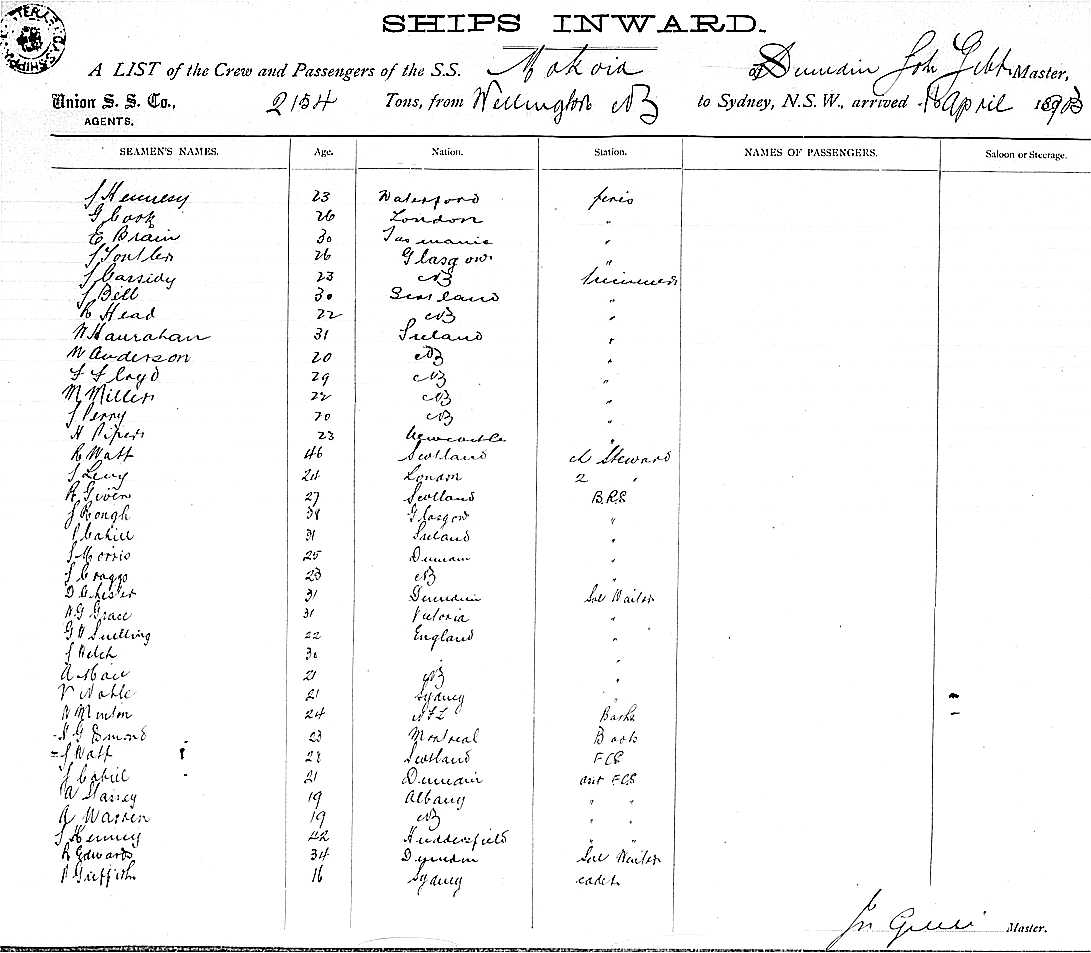 SHIPS INWARD.
A LIST of the Crew and Passengers of the S.S. Mokoia of Dunedin Joh Gibb Master,
Union S. S. Co., 2154 Tons, from Wellington NZ to Sydney, N.S.W., arrived April
AGENTS.
SEAMEN'S NAMES. Age. Nation. Station. NAMES OF PASSENGERS. Saloon or Steerage.
J Hennesy 23 Waterford
G Cook 26 London "
E Brain 30 Tasmania "
26 Glasgow "
J Cassidy 23 NZ Trimmers
J Bell 30 Scotland "
R Head 22 NZ "
W Hanrahan 31 Ireland "
W Anderson 20 NZ "
F Floyd 29 NZ "
M Miller 22 NZ "
J Perry 20 NZ "
H Piper 23 Newcastle "
R Watt 46 Scotland Steward
J Levy 24 London 2 "
R Given 27 Scotland B.R.S
J Rough 38 Glasgow "
P Cahill 31 Ireland "
J Morris 25 Dunedin "
J Craggs 23 NZ "
D Chester 31 Dunedin Sal Waiter
W G Grace 31 Victoria "
G W Snelling 22 England "
J Welch 30 "
A Mair 21 NZ "
V Noble 21 Sydney "
W Minton 24
23 Montreal Boots
J Watt Scotland FCS
J Cahill 21 Dunedin FCS
19 Albany " "
A Warren 19 NZ " "
J Kenney 42 Huddersfield " "
R Edwards 34 Dunedin Sal Waiter
Griffith 16 Sydney cadet
Master.